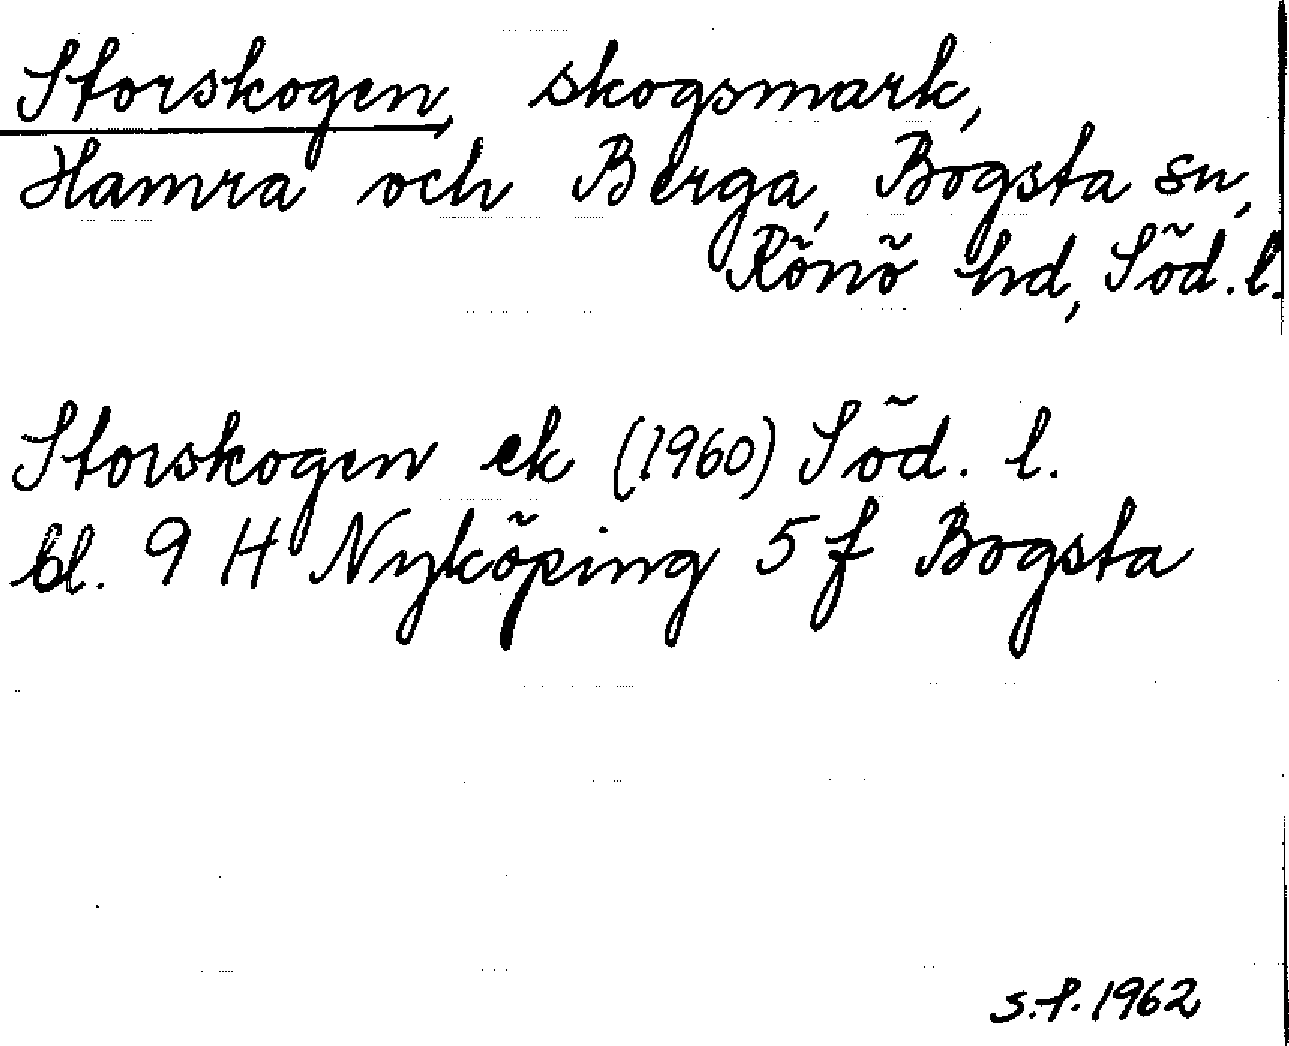 Storskogen, skogsmark,
Hamra och Berga, Bogsta sn,
Rönö hd, Söd. l.
Storskogen ek (1960) Söd. l.
bl. 9 H Nyköping 5 f Bogsta
S.F. 1962